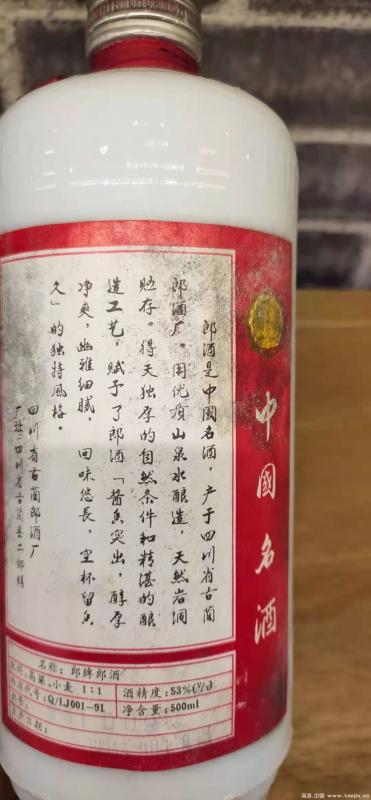 郎酒是中國名酒，产于四川省古蔺
郎酒厂。用优质山泉水酿造，天然岩洞
贮存。得天独厚的自然条件和精湛的酿
造工艺，赋予了郎酒「酱香突出，醇厚
净爽，幽雅细腻，回味悠長，空杯留香
久」的独特風格。
四川省古蔺郎酒厂
厂址：四川省古蔺县二郎镇
中國名酒
名称：郎牌郎酒
原料：高粱、小麦 1：1
酒精度：53%(V/V)
标准代号：Q/LJ001-91
净含量：500ml
生产日期：